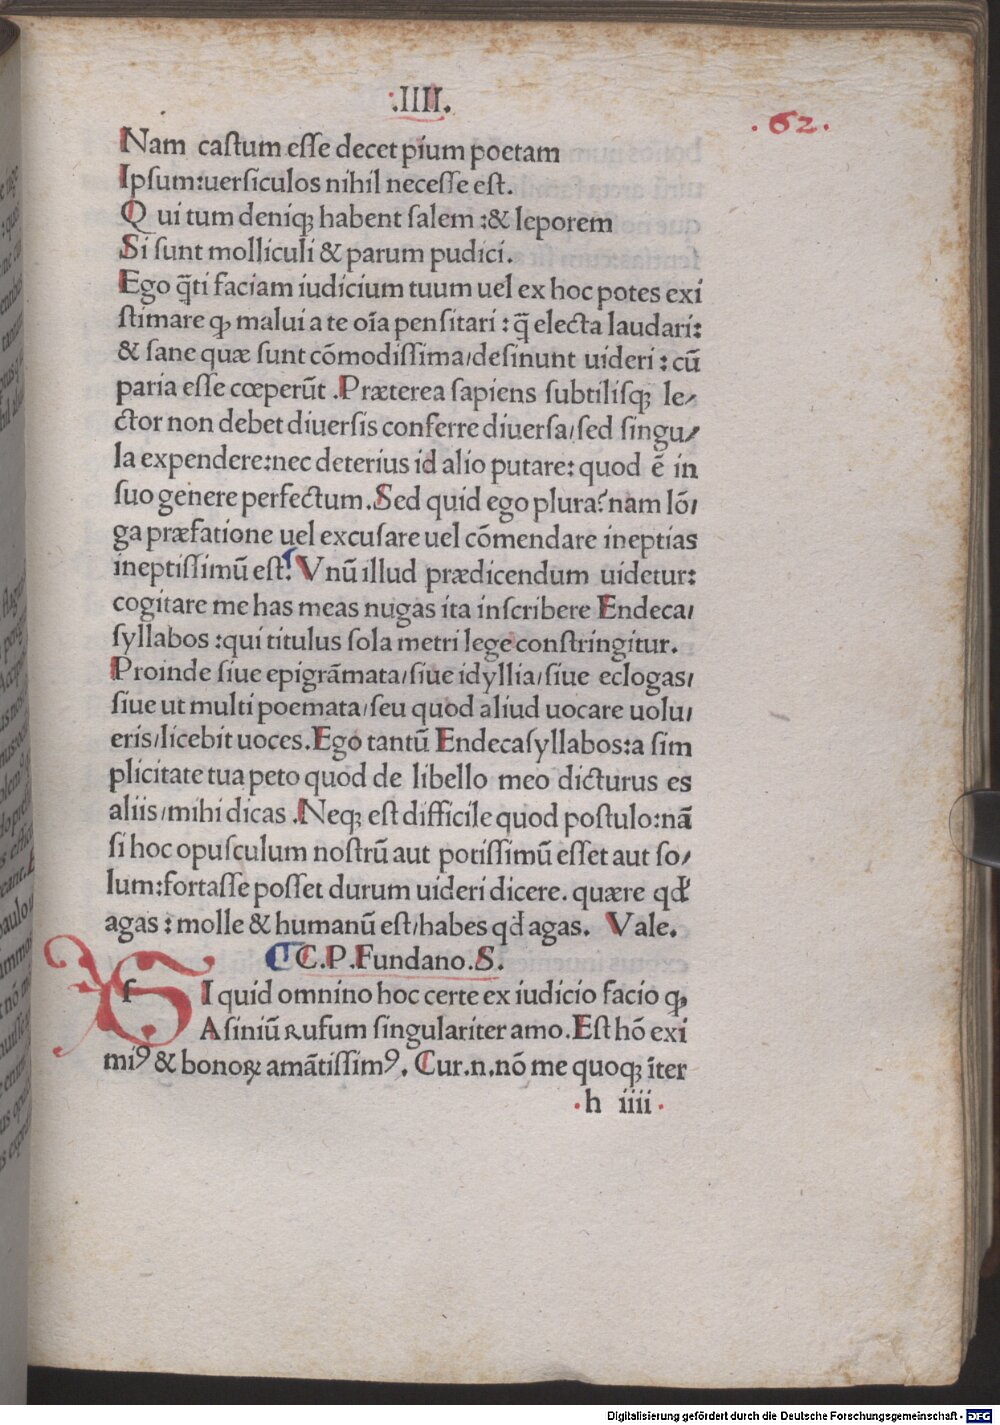 .IIII.
.62.
Nam caſtum eſſe decet pium poetam
Ipſum:uerſiculos nihil neceſſe eſt.
Qui tum deniqꝫ habent ſalem:& leporem
Si ſunt molliculi & parum pudici.
Ego q̃ti faciam iudicium tuum uel ex hoc potes exi
ſtimare qꝫ malui a te oĩa penſitari:q̃ electa laudari:
& ſane quæ ſunt cõmodiſſima/deſinunt uideri:cũ
paria eſſe cœperũt.Præterea ſapiens ſubtiliſqꝫ le/
ctor non debet diuerſis conferre diuerſa/ſed ſingu/
la expendere:nec deterius id alio putare:quod ẽ in
ſuo genere perfectum.Sed quid ego plura?nam lõ/
ga præfatione uel excuſare uel cõmendare ineptias
ineptiſſimũ eſt. Vnũ illud prædicendum uidetur:
cogitare me has meas nugas ita inſcribere Endeca/
ſyllabos:qui titulus ſola metri lege conſtringitur.
Proinde ſiue epigrãmata/ſiue idyllia/ſiue eclogas/
ſiue ut multi poemata/ſeu quod aliud uocare uolu/
eris/licebit uoces.Ego tantũ Endecaſyllabos:a ſim
plicitate tua peto quod de libello meo dicturus es
aliis/mihi dicas.Neqꝫ eſt difficile quod poſtulo:nã
ſi hoc opuſculum noſtrũ aut potiſſimũ eſſet aut ſo/
lum:fortaſſe poſſet durum uideri dicere. quære qđ
agas:molle & humanũ eſt/habes qđ agas. Vale.
C.P.Fundano.S.
SI quid omnino hoc certe ex iudicio facio qꝫ
Aſiniũ rufum ſingulariter amo.Eſt hõ exi
miꝰ & bonoꝝ amãtiſſimꝰ. Cur.n.nõ me quoqꝫ ĩter
h iiii
Digitalisierung gefördert durch die Deutsche Forschungsgemeinschaft - DFG